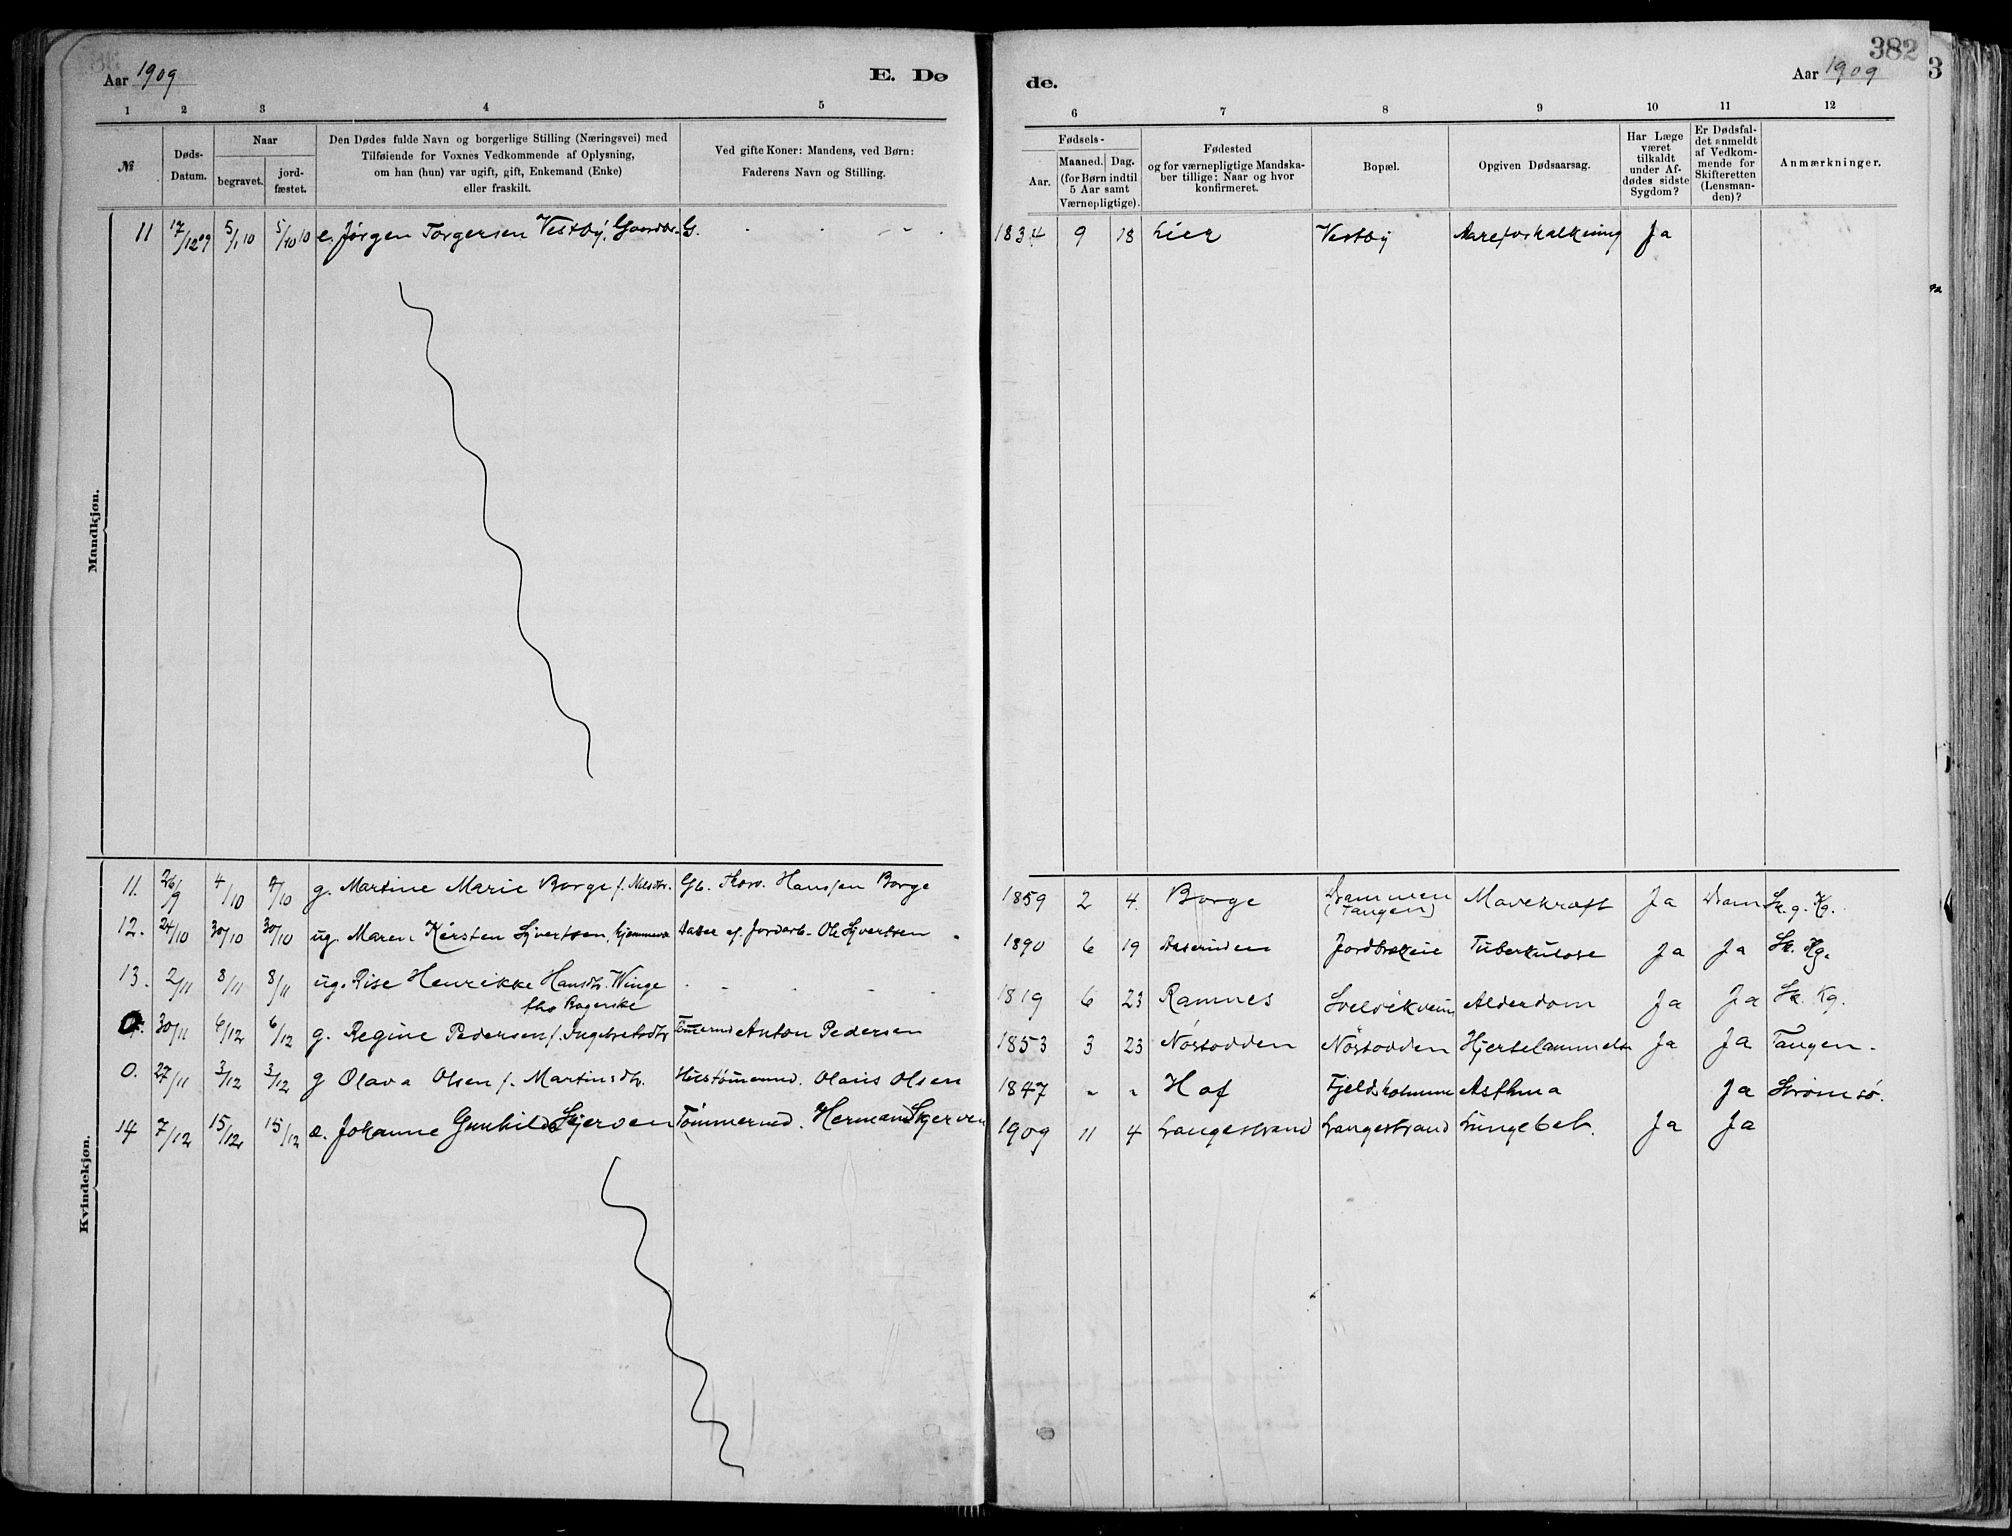 382
3
Aar 1909 E. Dø
de. Aar 1909
1 2 3 4 5
6 7 8 9 10 11 12
№
Døds-Datum.
Naar
begravet.
jord-fæstet.
Den Dødes fulde Navn og borgerlige Stilling (Næringsvei) med
Tilføiende for Voxnes Vedkommende af Oplysning,
om han (hun) var ugift, gift, Enkemand (Enke)
eller fraskilt.
Ved gifte Koner: Mandens, ved Børn:
Faderens Navn og Stilling.
Fødsels-
Aar.
Maaned. Dag.
(for Børn indtil
5 Aar samt
Værnepligtige).
Fødested
og for værnepligtige Mandska-
ber tillige: Naar og hvor
konfirmeret.
Bopæl.
Opgiven Dødsaarsag.
Har Læge
været
tilkaldt
under Af-
dødes sidste
Sygdom?
Er Dødsfal-
det anmeldt
af Vedkom-
mende for
Skifteretten
(Lensman-
den)?
Anmærkninger.
Mandkjøn.
11 17/12 09 5/1 10 5/10 10 e. Jørgen Torgersen Vestby, Gaardbr. G. 1834 9 18 Lier Vestby Aareforkalkning Ja
Kvindekjøn.
11. 26/9 4/10 4/10 g. Martine Marie Borge f. Nilsdtr. Gb. Thorv. Hanssen Borge 1859 2 4. Borge Drammen (Tangen) Mavekræft Ja Dram Sk. g. Kg.
12. 24/10 30/10 30/10 ug. Maren Kirsten Sjvertsen, hjemmevær. Datter af Jordarb. Ole Sjvertsen 1890 6 19 Jordbrækeie Tuberkulose Ja Ja Sk. Kg.
13. 2/11 8/11 8/11 ug. Rise Henrikke Hansdtr. Winge
fhv Bagerske 1819 6 23 Ramnes Svelvikveien Alderdom Ja Ja Sk. Kg.
0. 30/11 6/12 6/12 g. Regine Pedersen f. Ingebretsdtr Tømermd Anton Pedersen 1853 3 23 Nøstodden Nøstodden Hjertelammelse Ja Ja Tangen.
0. 27/11 3/12 3/12 g Olava Olsen f. Martinsdtr. Hustømermd. Olaus Olsen 1847 - - Hof Asthma Ja Strømsø.
14 7/12 15/12 15/12 æ. Johanne Gunhild Skjerven Tømmermd. Herman Skjerven 1909 11 4 Langestrand Langestrand Lungebet. Ja Ja